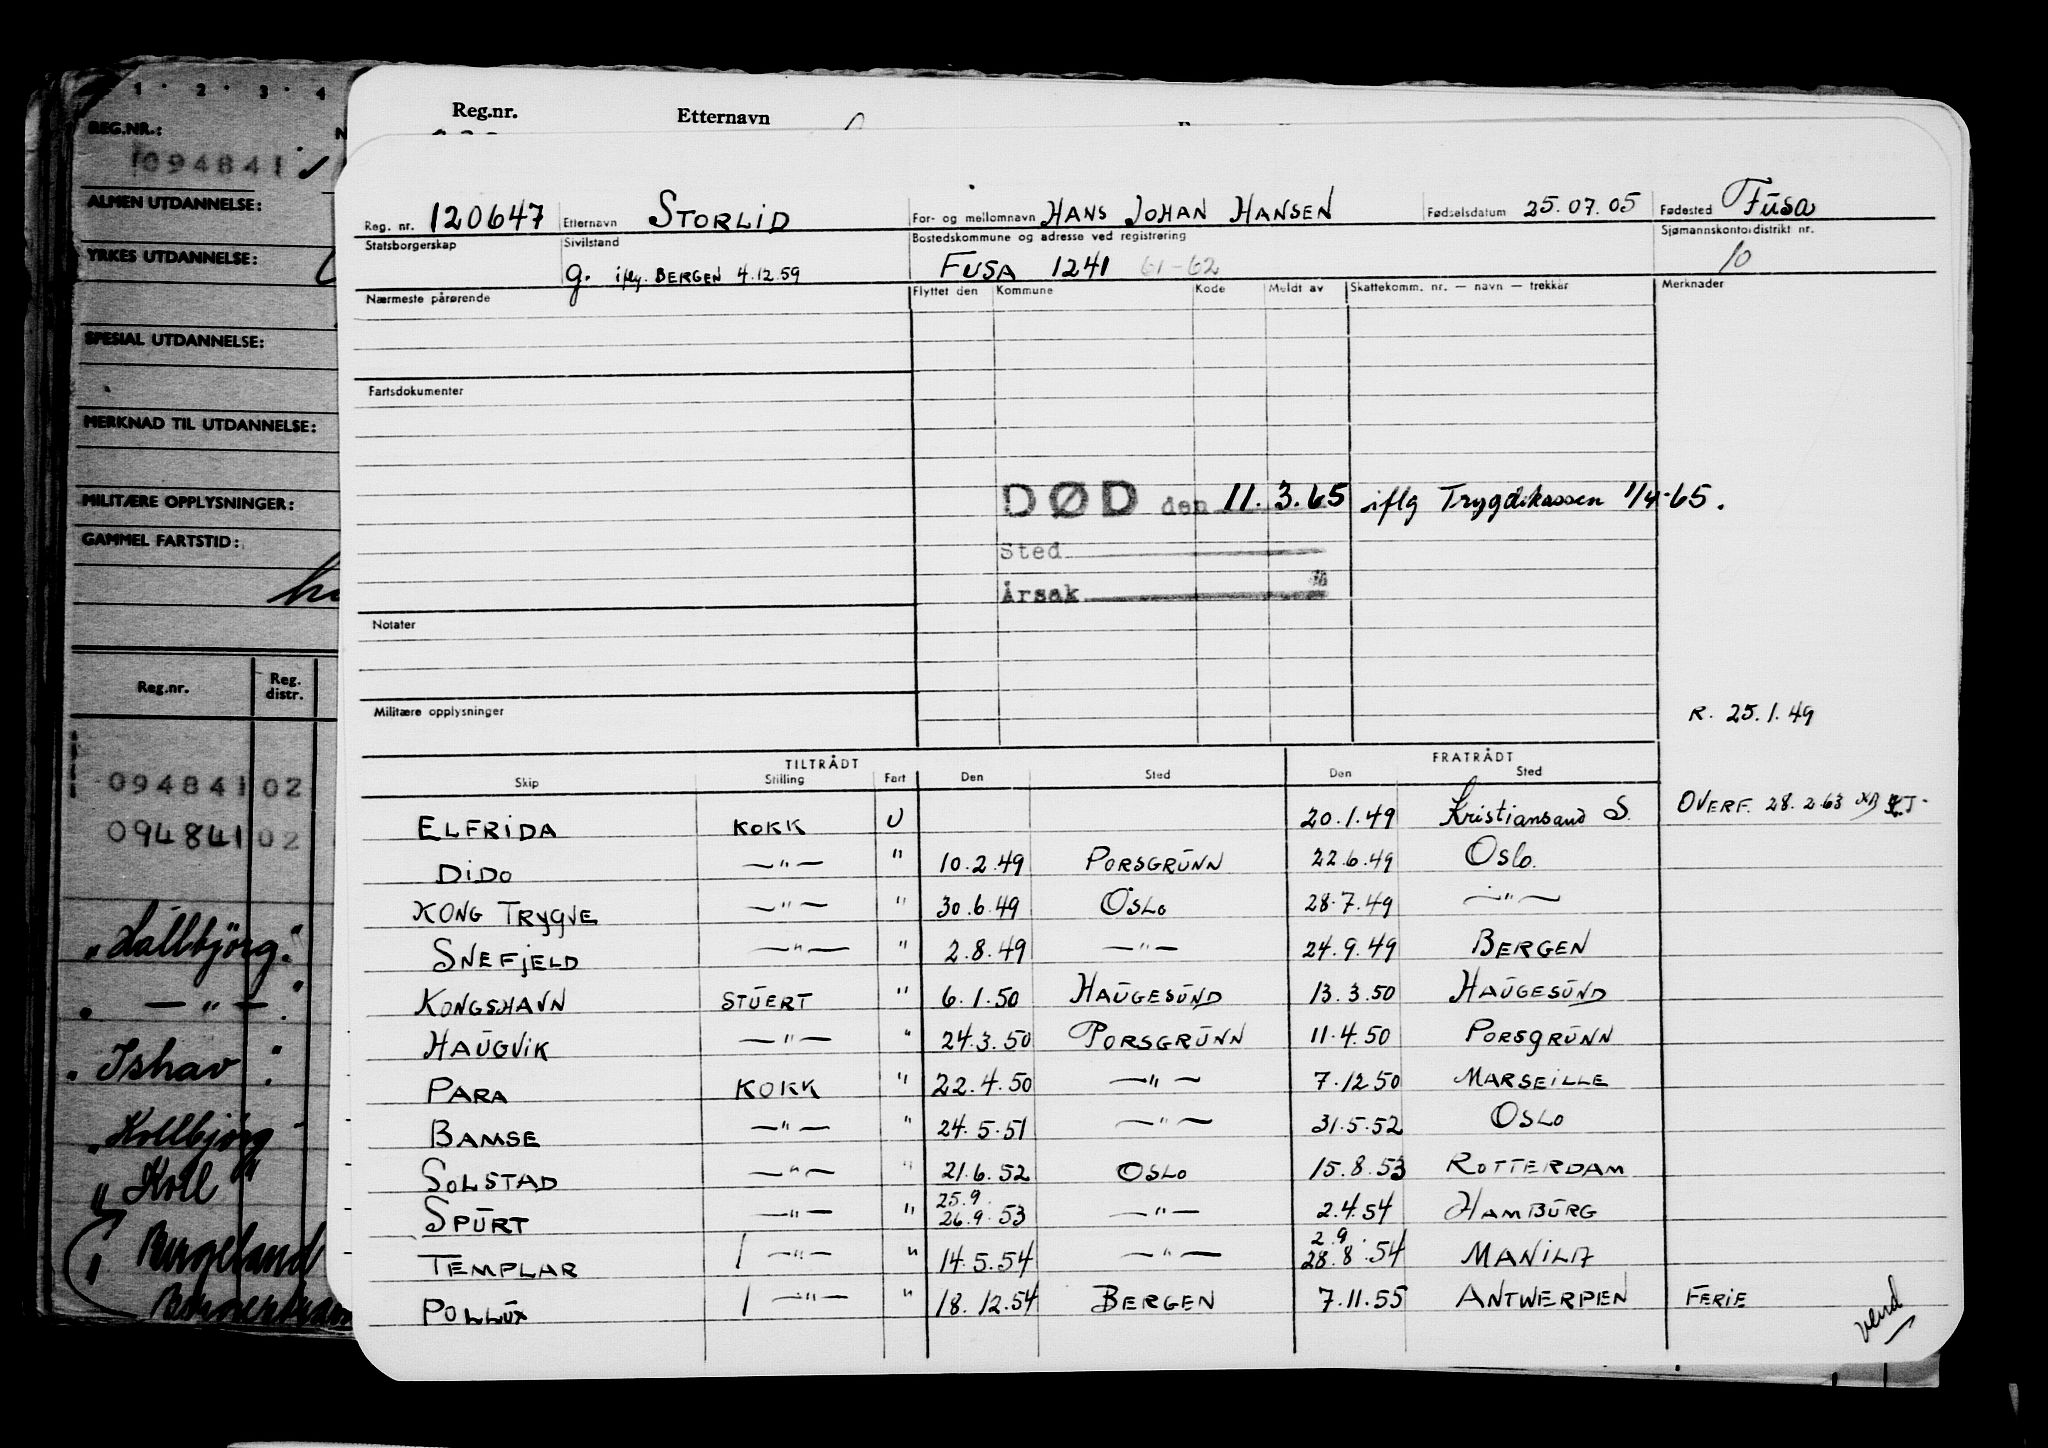 1 · 2 · 3 · 4
REG.NR.:
094841
ALMEN UTDANNELSE:
YRKES UTDANNELSE:
SPESIAL UTDANNELSE:
MERKNAD TIL UTDANNELSE:
MILITÆRE OPPLYSNINGER:
GAMMEL FARTSTID:
Reg.nr. Reg. distr.
094841 02
094841 02
"Hallbjörg"
" — " — "
"Ishav"
"Kollbjörg"
"Koll"
Reg.nr. Etternavn
Reg. nr. 120647 Etternavn STORLID For- og mellomnavn HANS JOHAN HANSEN Fødselsdatum 25.07.05 Fødested Fusa
Statsborgerskap Sivilstand g. iflg. BERGEN 4.12.59 Bostedskommune og adresse ved registrering FUSA 1241 61-62 Sjømannskontordistrikt nr. 10
Nærmeste pårørende Flyttet den Kommune Kode Meldt av Skattekomm. nr. — navn — trekkår Merknader
Fartsdokumenter
DØD den 11.3.65 iflg Trygdekassen 1/4-65.
Sted
Årsak
Notater
Militære opplysninger
R. 25.1.49
TILTRÅDT FRATRÅDT
Skip Stilling Fart Den Sted Den Sted
ELFRIDA KOKK U 20.1.49 Kristiansand S. OVERF. 28.2.63
DIDO —"— " 10.2.49 PORSGRUNN 22.6.49 Oslo.
KONG TRYGVE —"— " 30.6.49 OSLO 28.7.49 —"—
SNEFJELD —"— " 2.8.49 —"— 24.9.49 BERGEN
KONGSHAVN STUERT " 6.1.50 HAUGESUND 13.3.50 HAUGESUND
HAUGVIK —"— " 24.3.50 PORSGRUNN 11.4.50 PORSGRUNN
PARA KOKK " 22.4.50 —"— 7.12.50 MARSEILLE
BAMSE —"— " 24.5.51 —"— 31.5.52 OSLO
SOLSTAD —"— " 21.6.52 OSLO 15.8.53 ROTTERDAM
SPURT —"— " 25.9. 26.9.53 —"— 2.4.54 HAMBURG
TEMPLAR / —"— " 14.5.54 —"— 2.9. 28.8.54 MANILA
POLLUX / —"— " 18.12.54 BERGEN 7.11.55 ANTWERPEN FERIE
vend